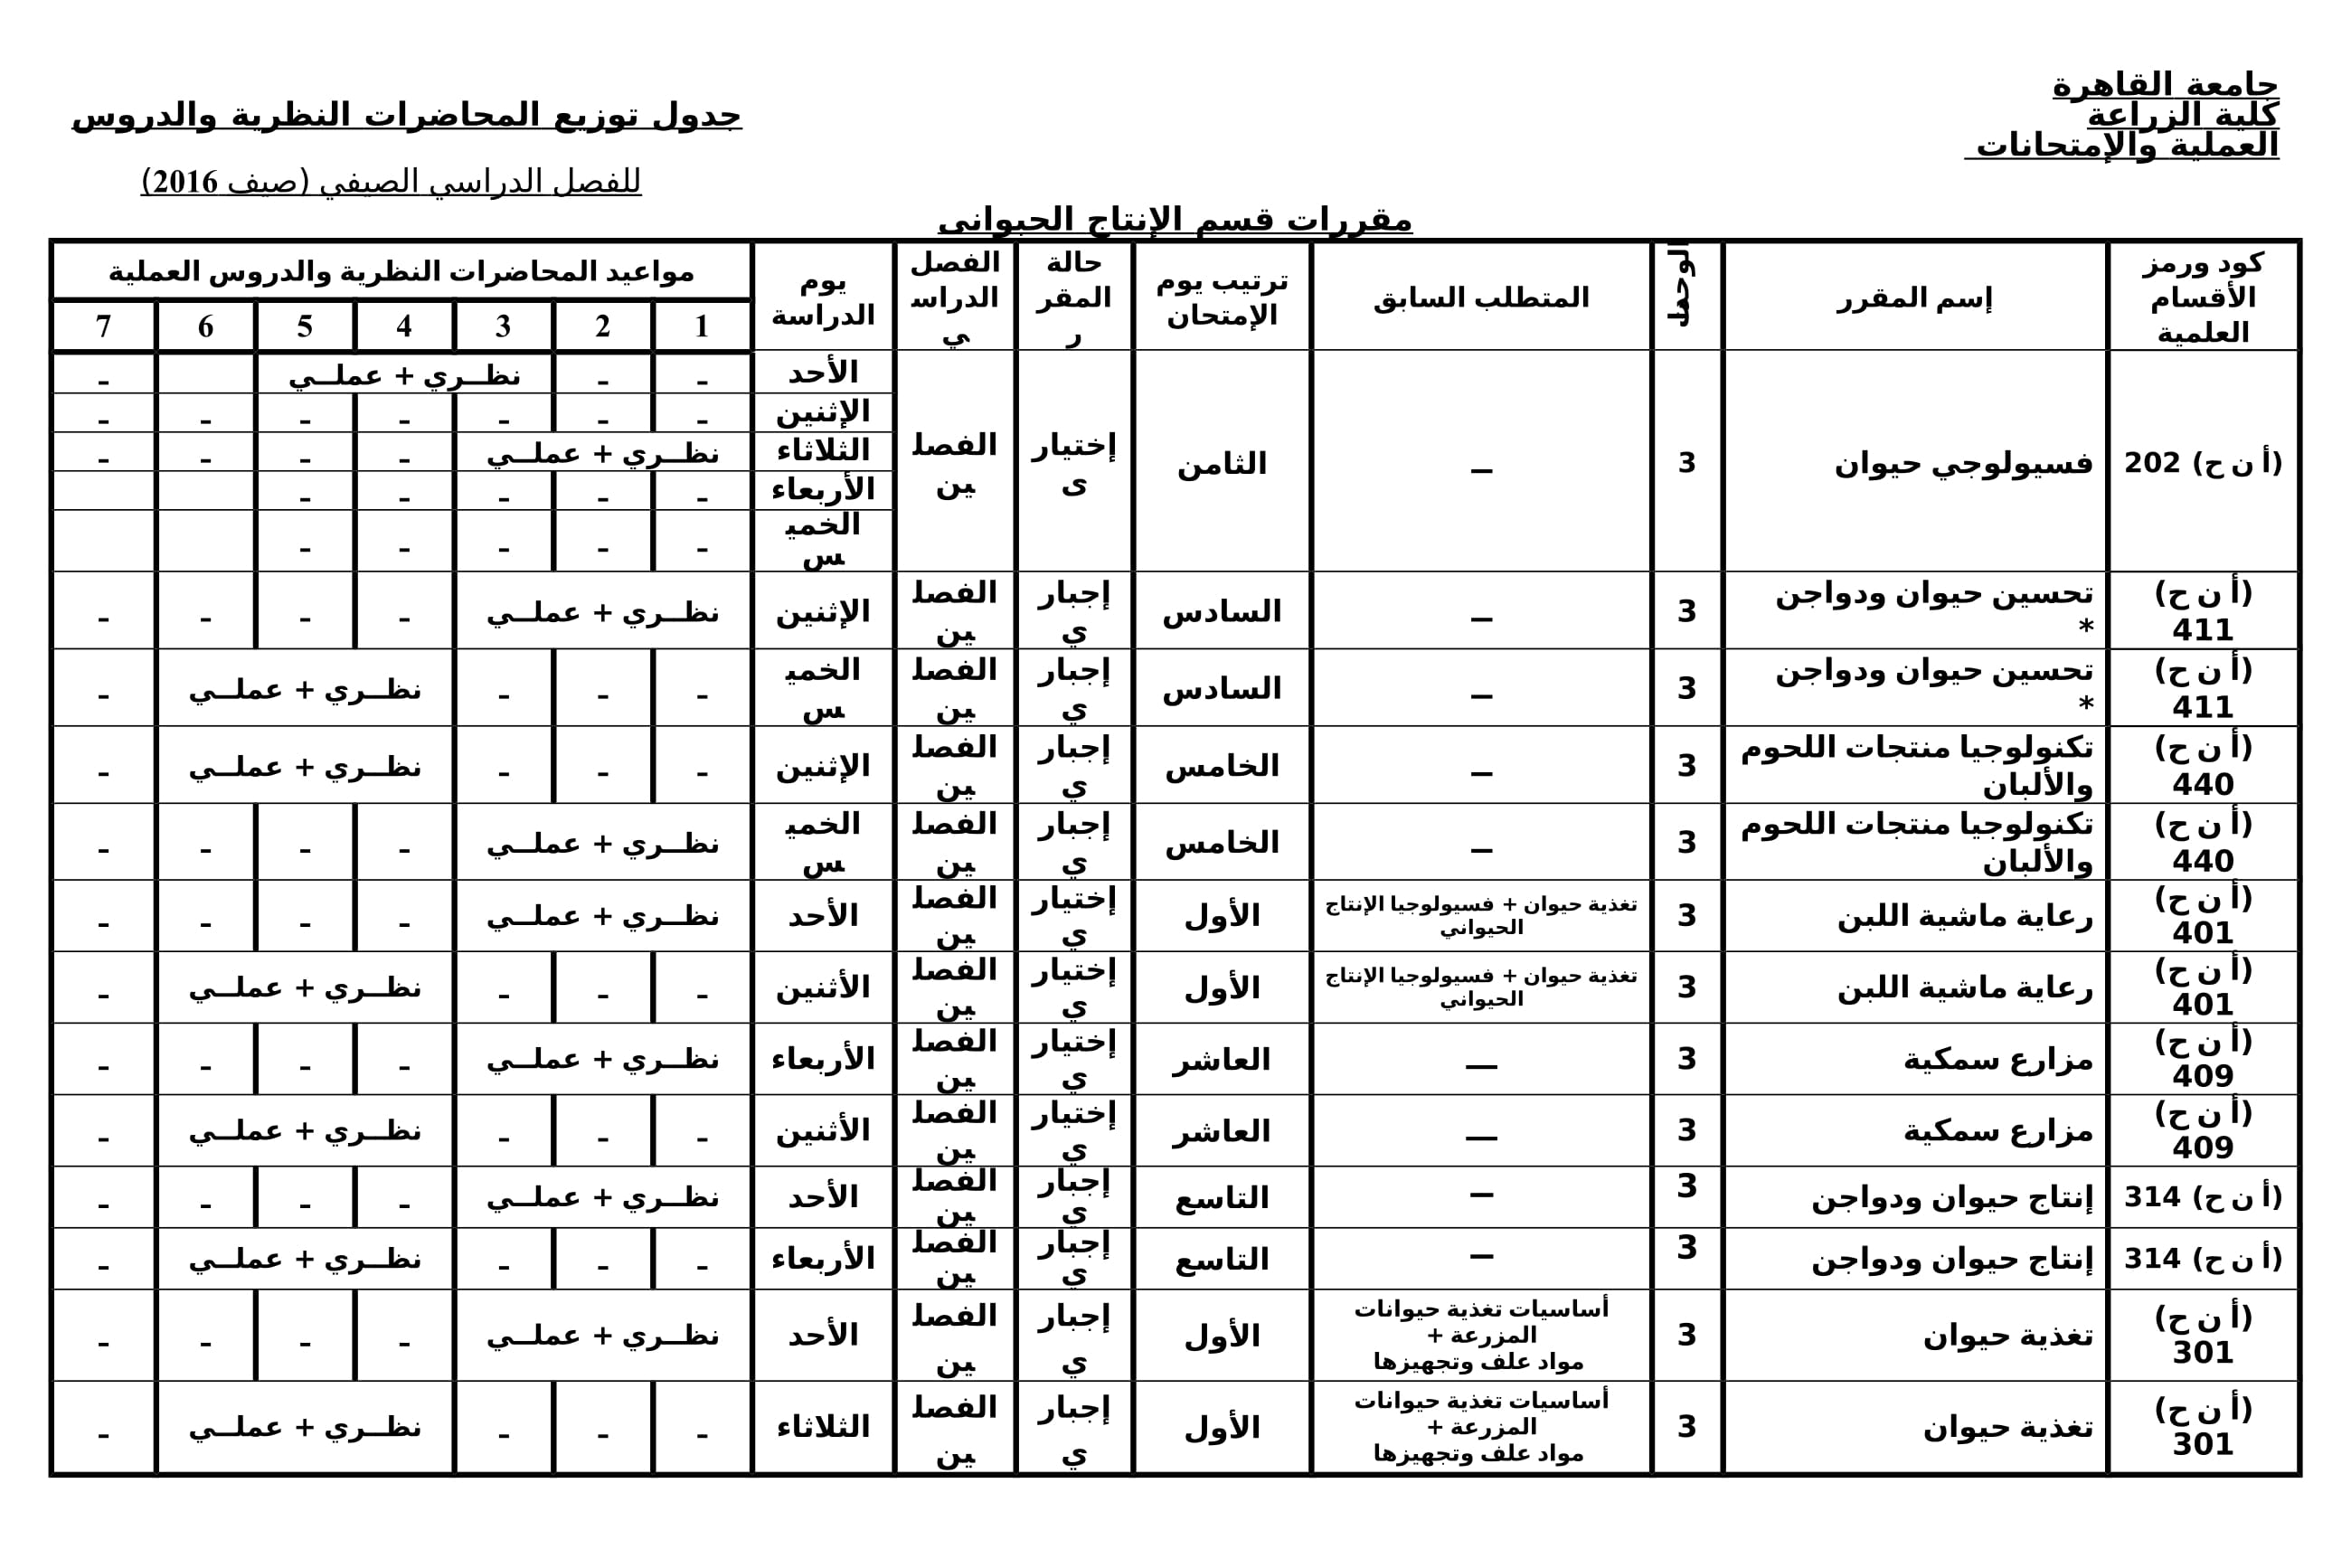 جامعة القاهرة
كلية الزراعة
جدول توزيع المحاضرات النظرية والدروس
العملية والإمتحانات
للفصل الدراسي الصيفي (صيف 2016)
مقررات قسم الإنتاج الحيوانى
كود ورمز الأقسام العلمية	إسم المقرر	المتطلب السابق	ترتيب يوم الإمتحان	حالة المقرر	الفصل الدراسي	يوم الدراسة	مواعيد المحاضرات النظرية والدروس العملية
1	2	3	4	5	6	7
(أ ن ح) 202	فسيولوجي حيوان	3	ــ	الثامن	إختيارى	الفصلين	الأحد	-	-	نظــري + عملــي		-
الإثنين	-	-	-	-	-	-	-
الثلاثاء	نظــري + عملــي	-	-	-	-
الأربعاء	-	-	-	-	-
الخميس	-	-	-	-	-
(أ ن ح) 411	تحسين حيوان ودواجن *	3	ــ	السادس	إجباري	الفصلين	الإثنين	نظــري + عملــي	-	-	-	-
(أ ن ح) 411	تحسين حيوان ودواجن *	3	ــ	السادس	إجباري	الفصلين	الخميس	-	-	-	نظــري + عملــي	-
(أ ن ح) 440	تكنولوجيا منتجات اللحوم والألبان	3	ــ	الخامس	إجباري	الفصلين	الإثنين	-	-	-	نظــري + عملــي	-
(أ ن ح) 440	تكنولوجيا منتجات اللحوم والألبان	3	ــ	الخامس	إجباري	الفصلين	الخميس	نظــري + عملــي	-	-	-	-
(أ ن ح) 401	رعاية ماشية اللبن	3	تغذية حيوان + فسيولوجيا الإنتاج الحيواني	الأول	إختياري	الفصلين	الأحد	نظــري + عملــي	-	-	-	-
(أ ن ح) 401	رعاية ماشية اللبن	3	تغذية حيوان + فسيولوجيا الإنتاج الحيواني	الأول	إختياري	الفصلين	الأثنين	-	-	-	نظــري + عملــي	-
(أ ن ح) 409	مزارع سمكية	3	ـــ	العاشر	إختياري	الفصلين	الأربعاء	نظــري + عملــي	-	-	-	-
(أ ن ح) 409	مزارع سمكية	3	ـــ	العاشر	إختياري	الفصلين	الأثنين	-	-	-	نظــري + عملــي	-
(أ ن ح) 314	إنتاج حيوان ودواجن	3	ــ	التاسع	إجباري	الفصلين	الأحد	نظــري + عملــي	-	-	-	-
(أ ن ح) 314	إنتاج حيوان ودواجن	3	ــ	التاسع	إجباري	الفصلين	الأربعاء	-	-	-	نظــري + عملــي	-
(أ ن ح) 301	تغذية حيوان	3	أساسيات تغذية حيوانات المزرعة + مواد علف وتجهيزها	الأول	إجباري	الفصلين	الأحد	نظــري + عملــي	-	-	-	-
(أ ن ح) 301	تغذية حيوان	3	أساسيات تغذية حيوانات المزرعة + مواد علف وتجهيزها	الأول	إجباري	الفصلين	الثلاثاء	-	-	-	نظــري + عملــي	-